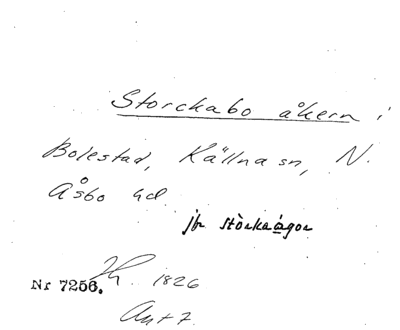 Storckabo åkern i
Bolestad, Källna sn, N.
Åsbo hd.
jfr störkaågor
Nr 7256. 1826